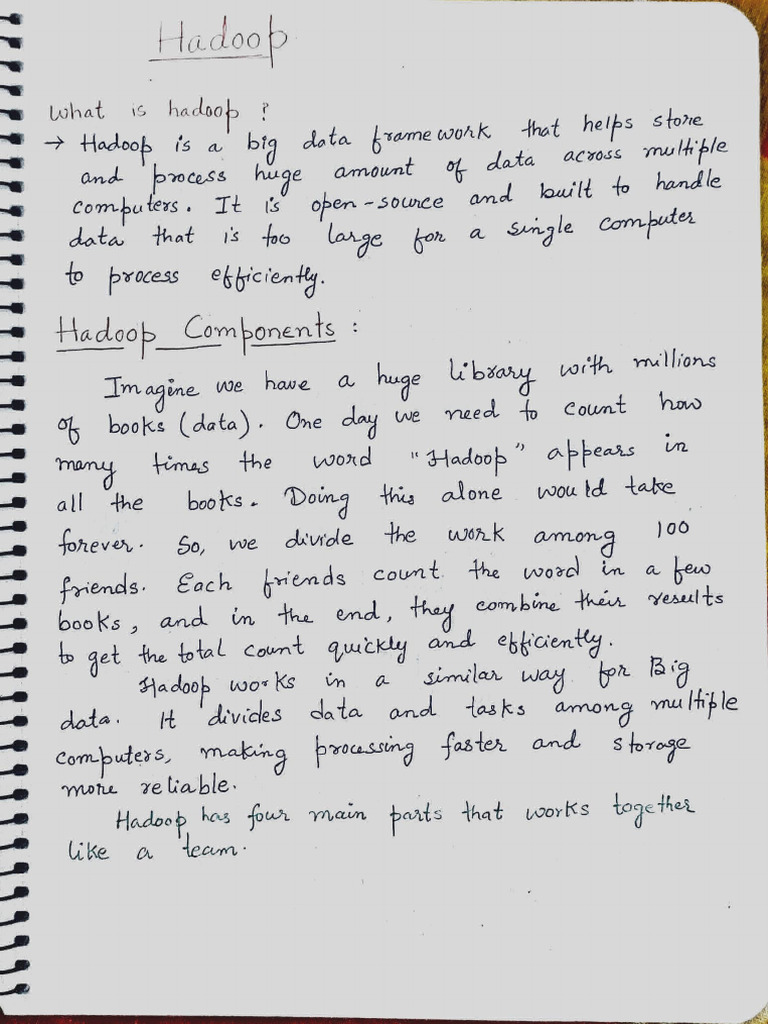 Hadoop
What is hadoop ?
→ Hadoop is a big data framework that helps store
and process huge amount of data across multiple
computers. It is open-source and built to handle
data that is too large for a single computer
to process efficiently.
Hadoop Components :
Imagine we have a huge library with millions
of books (data). One day we need to count how
many times the word "Hadoop" appears in
all the books. Doing this alone would take
forever. So, we divide the work among 100
friends. Each friends count the word in a few
books, and in the end, they combine their results
to get the total count quickly and efficiently.
Hadoop works in a similar way for Big
data. It divides data and tasks among multiple
computers, making processing faster and storage
more reliable.
Hadoop has four main parts that works together
like a team.